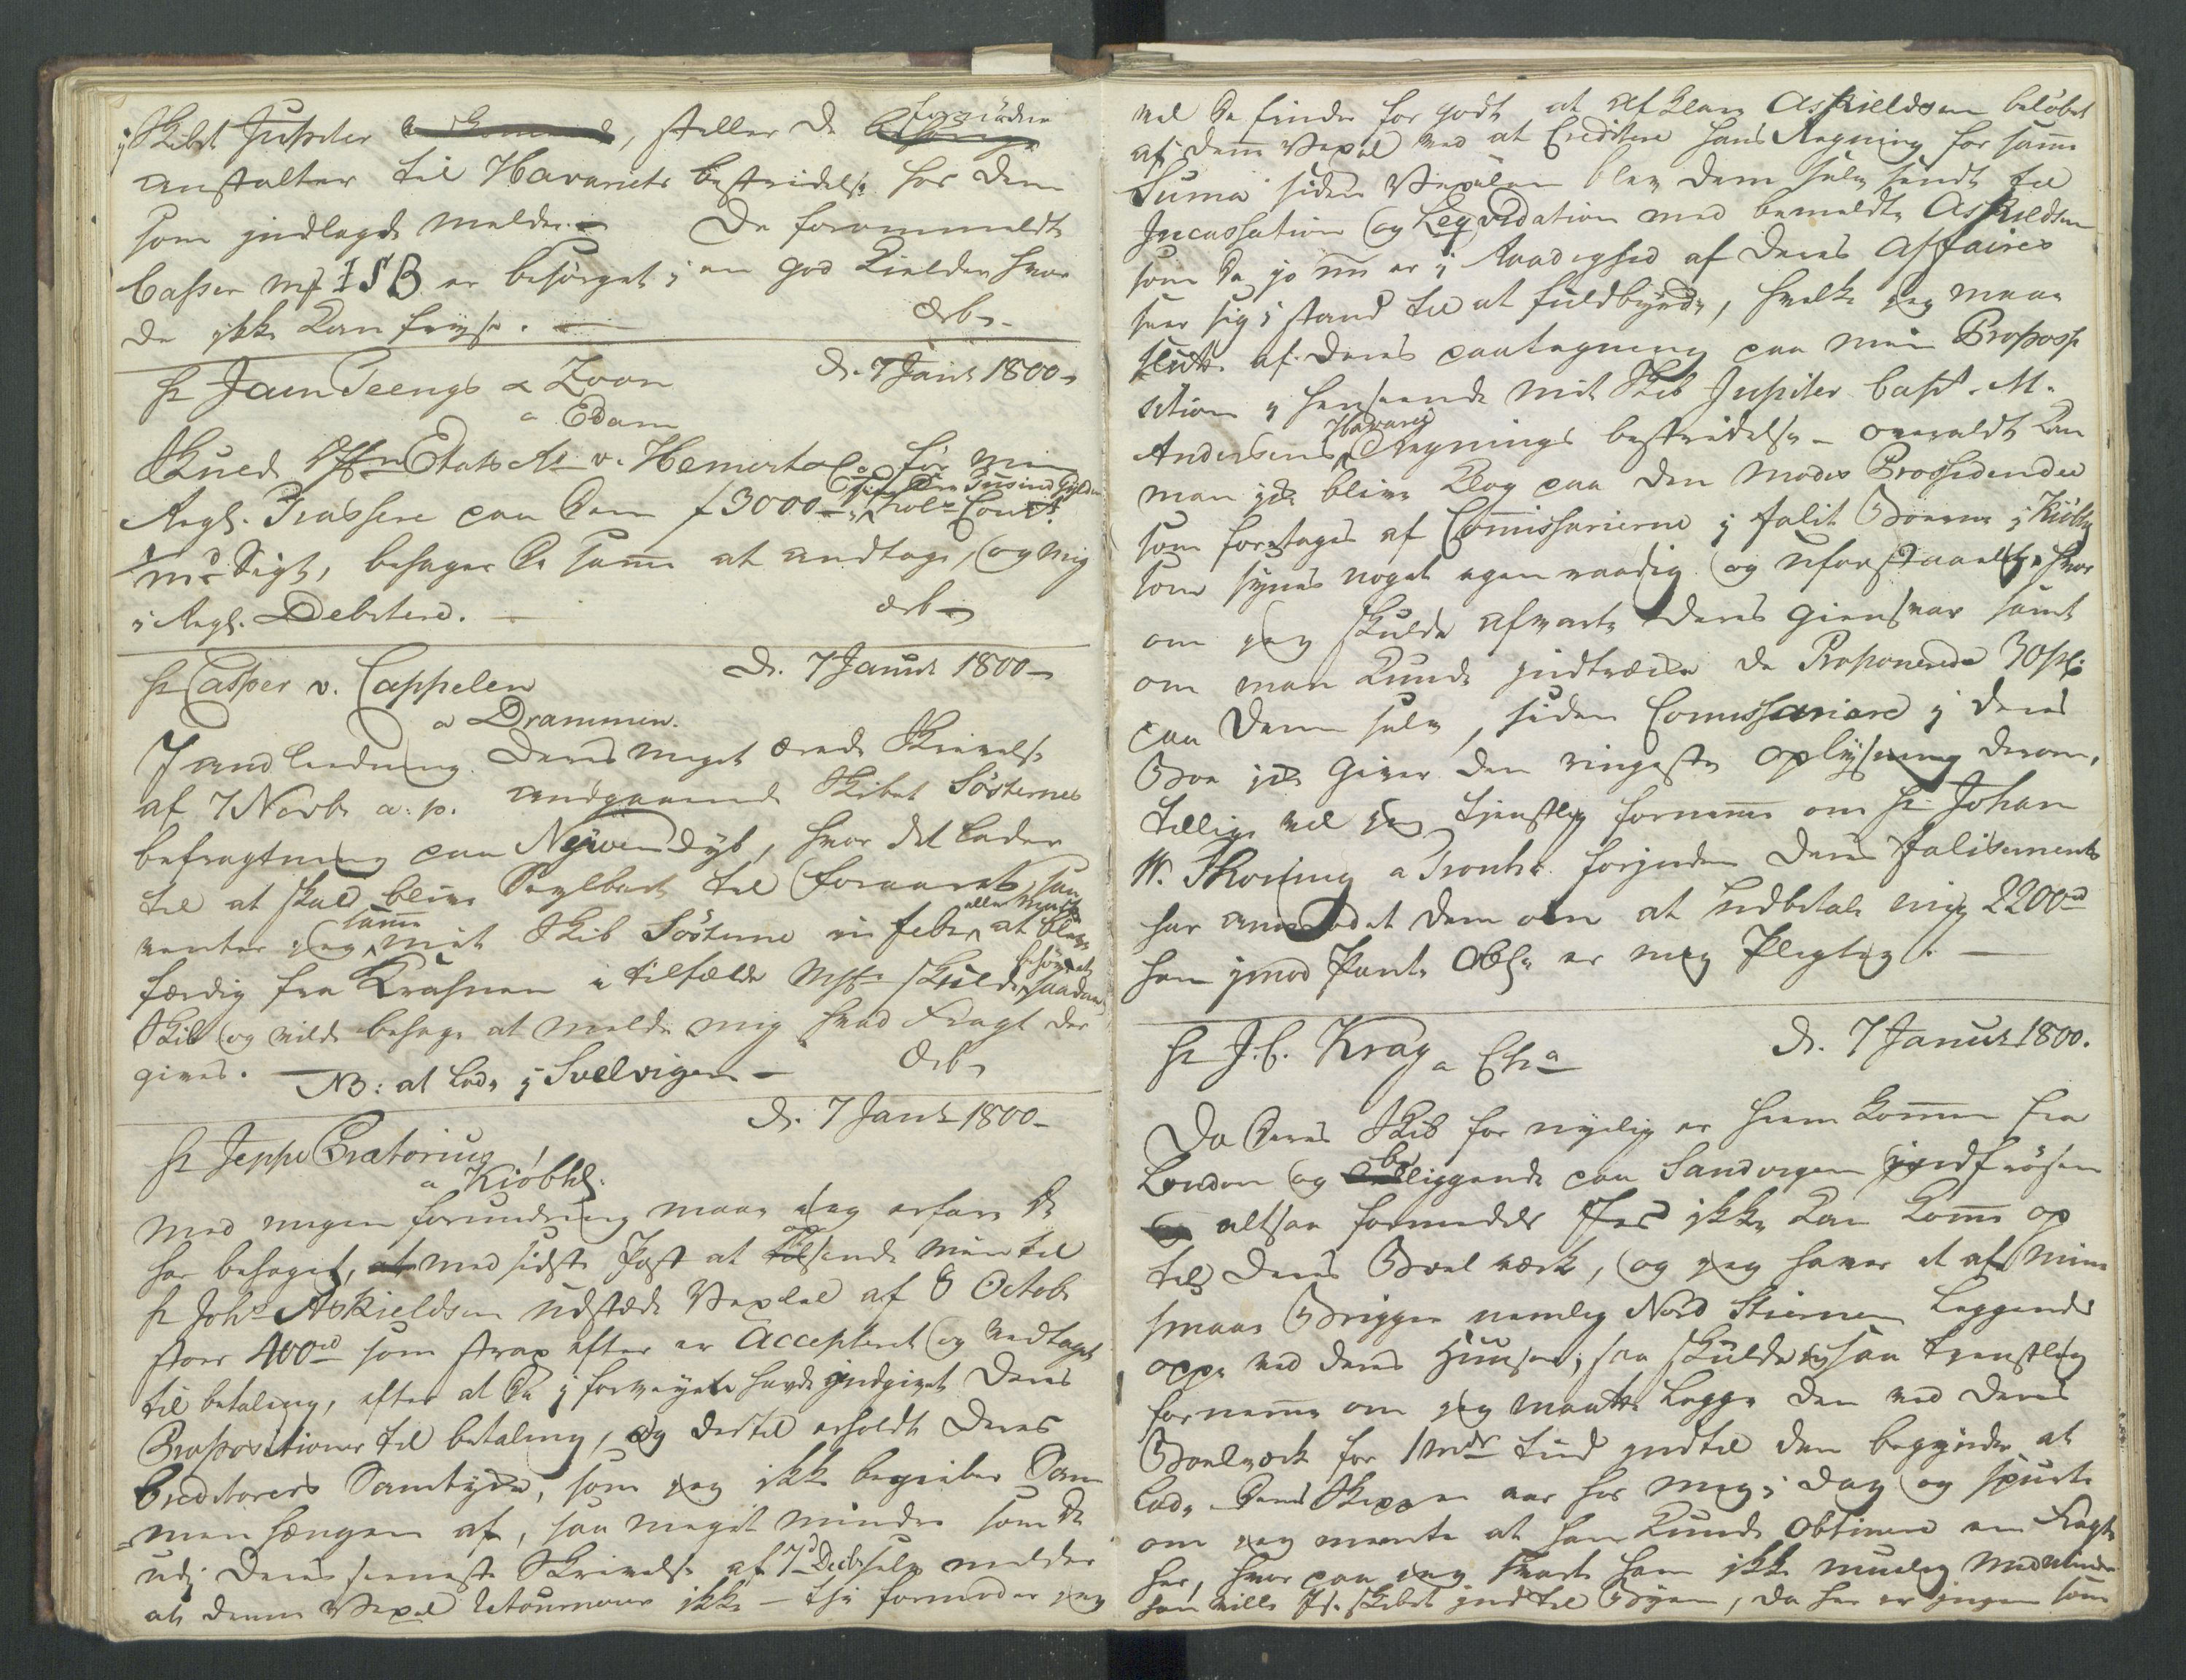 i Skibet Jupiter, stiller De fornødne
anstalter til Havariets bestridelse hos dem
som indlagde melder. – De forommeldte
Casser mrk ISB er besørget i en god Kielder hvor
de ikke kan fryse. – Erb.
Hr Jaen Teengs & Zoon d. 7 Janr 1800
a Edam
Skued Hrn Etats Rd v. Hemert & Co for min
Regn. Trassere paa Dem f 3000 – siger Tre Tusinde Gylden Hol. Court
md Sigt, behager De samme at andtage, og mig
i Regn. Debitere. – Erb
Hr Casper v. Cappelen d. 7 Januar 1800
a Drammen.
J andleedning Deres meget ærede Skrivelse
af 7 Novbr a. p. andgaaende Skibet Søsterne's
befragtning paa Nyvendyb, hvor det lader
til at skal blive Seylbart til Foraaret, saa
venter jeg samme mit Skib Søsterne in febr. eller Marti at blive
færdig fra Krahnen i tilfælde skulde behøve et saadan
Skib og vilde behage at melde mig hvad Fragt der
gives. – NB: at lade i Svelvigen – Erb
d. 7 Janr 1800
Hr Jeppe Prætorius
a Kiøbh.
Med megen forundring maae jeg erfare De
har behaget, med sidste Post at opsende min til
Hr Johs Askieldsen udstædte Vexel af 8 Octobr
stoer 400rd som strax efter er Accepteret og Andtaget
til betaling, efter at De i forveyen havde indgivet Deres
Propositioner til betaling, og dertil erholdt Deres
Creditorers Samtykke, som jeg ikke begriber Sam
menhængen af, saa meget mindre som De
udi Deres seeneste Skrivelse af 7d Decbr selv melder
at denne Vexel retournerer ikke – thi formoder jeg
vel De finder for godt at af Klare Askieldsen beløbet
af denne Vexel ved at Creditere hans Regning for samme
Suma siden Vexelen blev Dem selv sendt til
Incassation og Liqvidation med bemeldte Askieldsen
som De jo nu er i Raadighed af Deres Affairer
seer sig i stand til at fuldbyrde, hvilke jeg maae
slutte af Deres paategning paa min Proposi
sition i henseende mit Skib Jupiter Capt. M.
Andersens Havarie Regnings bestridelse – overaldt kan
man ikke blive Klog paa den Modes Prossidender
som foretages af Commissarierne i falit Boerne i Kiøbh
som synes noget egenraadig og uforstaaelig, hvor
om jeg skulde afvarte Deres Giensvar samt
om man kunde indtrække de Proponerede 30 pC
paa Dem selv, siden Comissariere i Deres
Boe ikke Giver den ringeste oplysning derom,
tillige vil jeg tienstlig fornemme om Hr Johan
W. Thoning a Tronhr. forinden Deres falisements
har anmodet Dem om at udbetale mig 2200rd
han imod Pante Obl. er mig Pligtig. –
Hr J. C. Krag a Cha d. 7 Januar 1800.
Da Deres Skib for nylig er hiem kommen fra
London og beliggende paa Sandvigen indfrøsen
altsaa formedelst Jes ikke kan komme op
til Deres Boelværk, og jeg haver et af mine
smaae Brigger nemlig Nord Stiernen liggende
oppe ved Deres Huuse; saa skulde jeg saa tienstlig
fornemme om jeg maatte legge den ved Deres
Boelværk for 1 mdr tiid indtil den begynder at
lade. Deres Skipper var hos mig i Dag og spurte
om jeg meente at han kunde Obtinere en Fragt
her, hvor paa jeg svarte ham ikke muelig med mindre
han ville Jse skibet ind til Byen, da her er ingen som